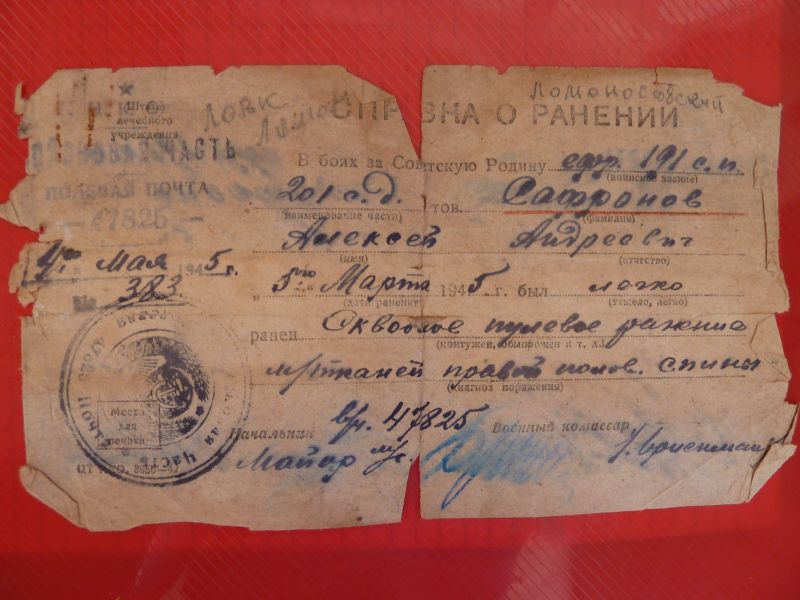 Штамп
лечебного
учреждения
ЧАСТЬ
ПОЛЕВАЯ ПОЧТА
47825
Мая 1945 г.
№ 383
Ломоносовский
О РАНЕНИИ
В боях за Советскую Родину ефр. 191 с.п.
(воинское звание)
201 с.д. тов. Сафронов
(наименование части) (фамилия)
Алексей Андреевич
(имя) (отчество)
"5го" Марта 1945 г. был легко
(дата ранения) (тяжело, легко)
ранен Сквозное пулевое ранение
(контужен, обморожен и т. д.)
м/тканей правой полов. спины
(диагноз поражения)
Начальник в/ч. 47825 Военный комиссар
Майор м/с.
Место
для
печати
Часть